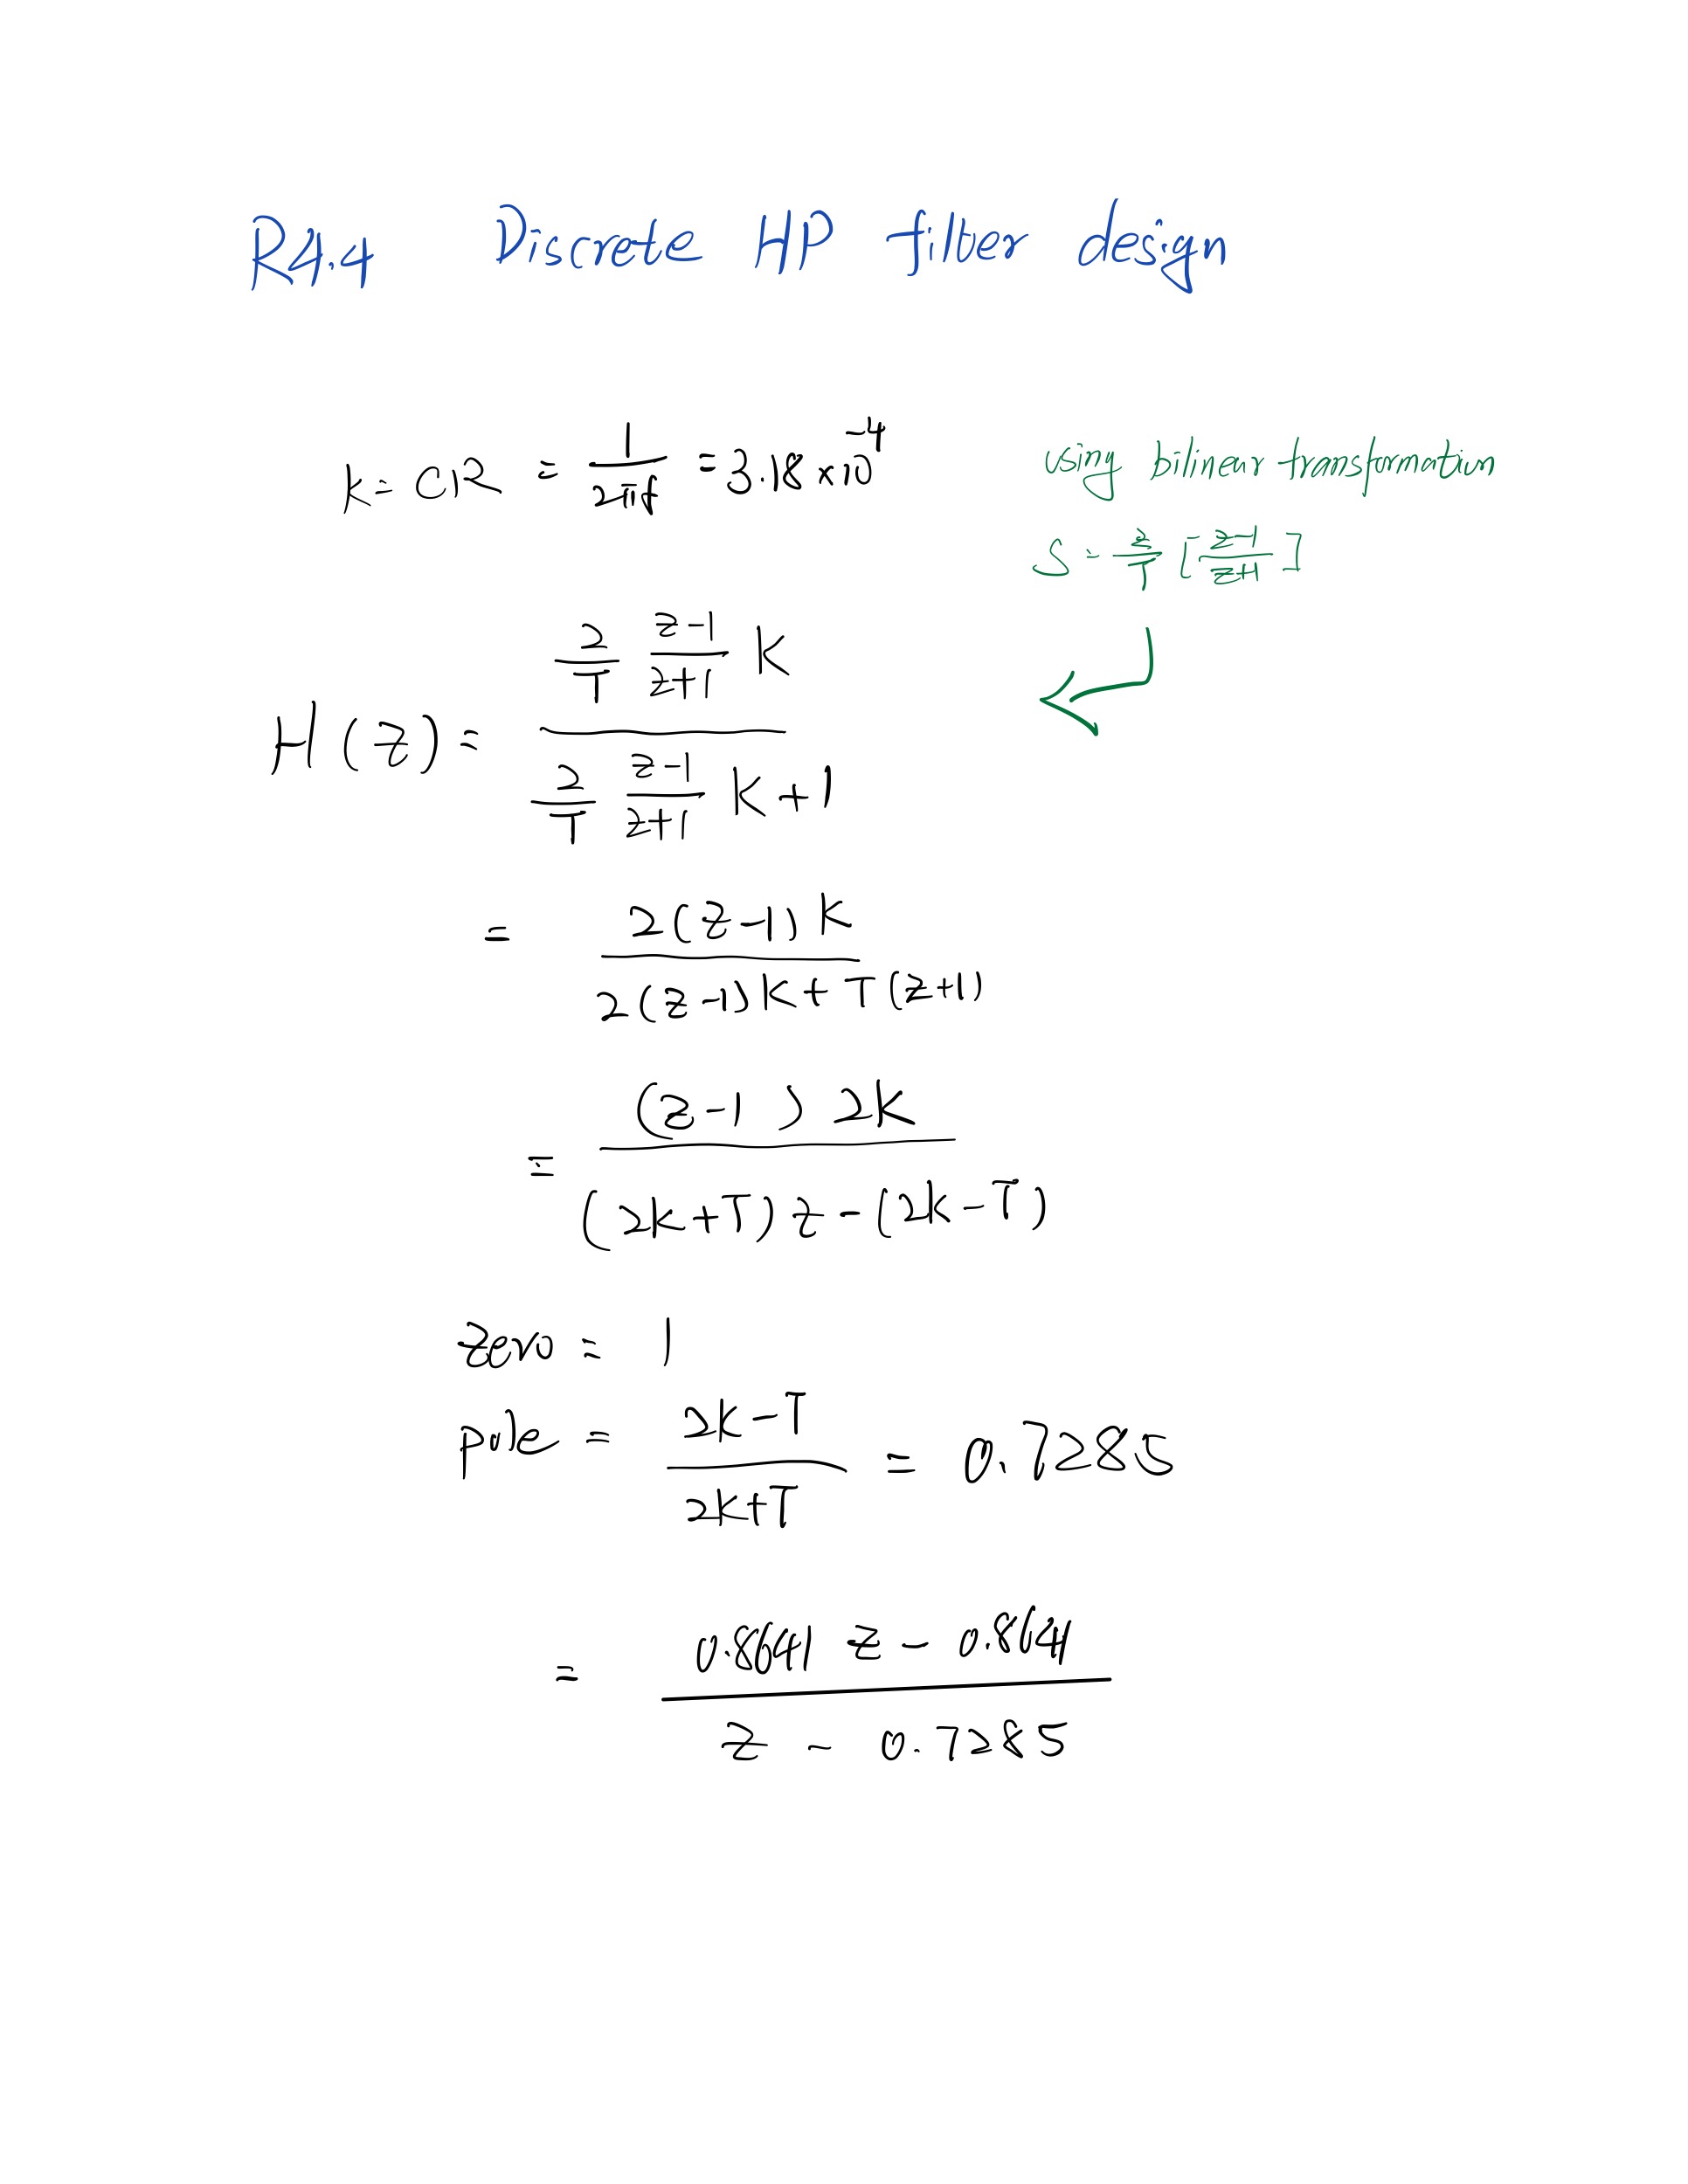 R4.4 Discrete HP filter design
K = CR = 1/(2πf) = 3.18 × 10^-4
using bilinear transformation
S = 2/T [(z-1)/(z+1)]
H(z) = (2/T (z-1)/(z+1) K) / (2/T (z-1)/(z+1) K + 1)
= (2(z-1)K) / (2(z-1)K + T(z+1))
= ((z-1)2K) / ((2K+T)z - (2K-T))
zero = 1
pole = (2K-T)/(2K+T) = 0.7285
= (0.8641 z - 0.8641) / (z - 0.7285)